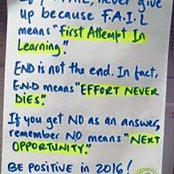 never give
up because F.A.I.L
means "First Attempt In
Learning."
END is not the end. In fact,
E.N.D means "EFFORT NEVER
DIES."
If you get NO as an answer,
remember NO means "NEXT
OPPORTUNITY."
BE POSITIVE IN 2016!